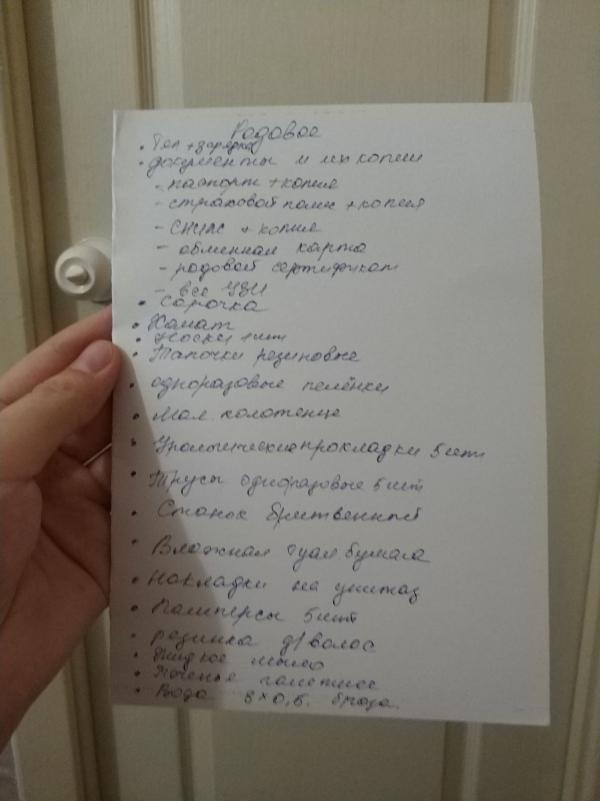 Родовое
• Тел + зарядка
• документы и их копии
- паспорт + копия
- страховой полис + копия
- СНИЛС + копия
- обменная карта
- родовой сертификат
- все УЗИ
• Сорочка
• Халат
• Носки 1 шт
• Тапочки резиновые
• одноразовые пелёнки
• Мал. полотенце
• Урологические прокладки 5 шт
• Трусы одноразовые 5 шт
• Станок бритвенный
• Влажная туал бумага
• Накладки на унитаз
• Памперсы 5 шт
• резинка д/волос
• Жидкое мыло
• Печенье галетное
• Вода 3 × 0,5.